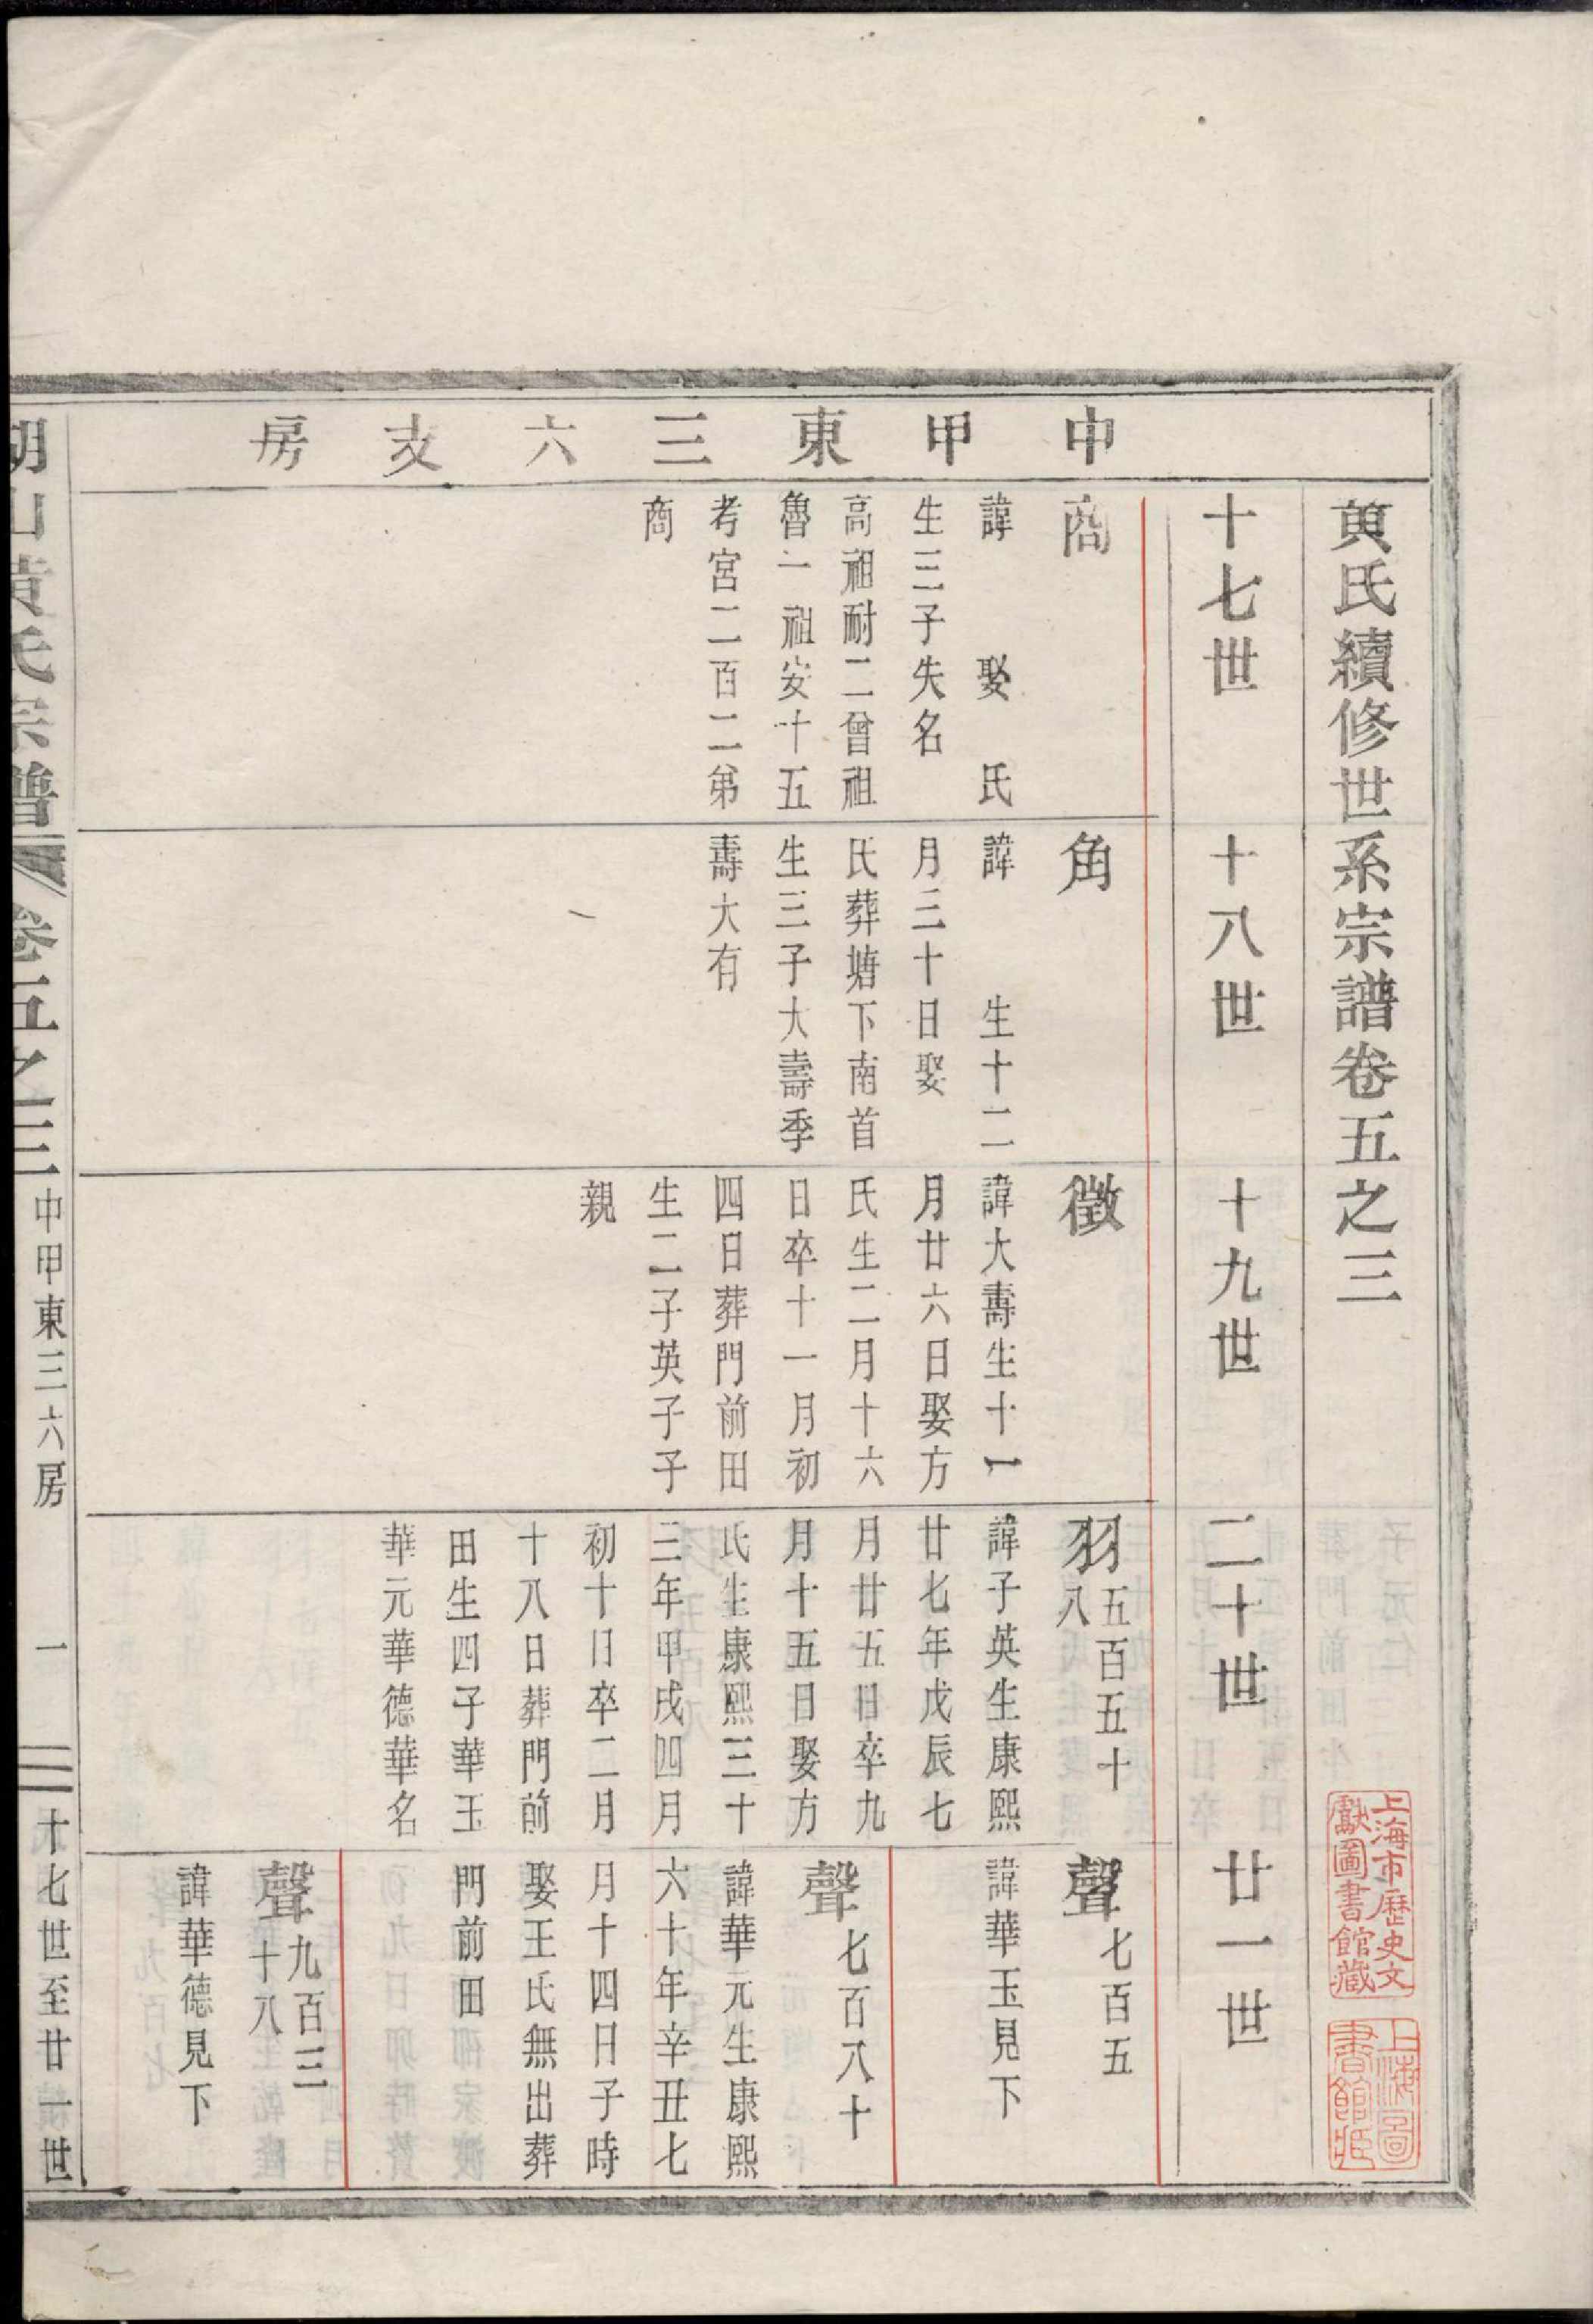 黄氏續修世系宗譜卷五之三
上海市歷史文
獻圖書館藏
上海圖
書館藏
中甲東三六支房
十七世
商
諱 娶 氏
生三子失名
高祖耐二曾祖
魯一祖安十五
考宮二百二弟
商
十八世
角
諱 生十二
月三十日娶
氏葬塘下南首
生三子大壽季
壽大有
十九世
徵
諱大壽生十一
月廿六日娶方
氏生二月十六
日卒十一月初
四日葬門前田
生二子英子子
親
二十世
羽五百五十
八
諱子英生康熙
廿七年戊辰七
月廿五日卒九
月十五日娶方
氏生康熙三十
三年甲戌四月
初十日卒二月
十八日葬門前
田生四子華玉
華元華德華名
廿一世
聲七百五
諱華玉見下
聲七百八十
諱華元生康熙
六十年辛丑七
月十四日子時
娶王氏無出葬
門前田
聲九百三
十八
諱華德見下
胡山黃氏宗譜 卷五之三 中甲東三六房 一 十七世至廿一世